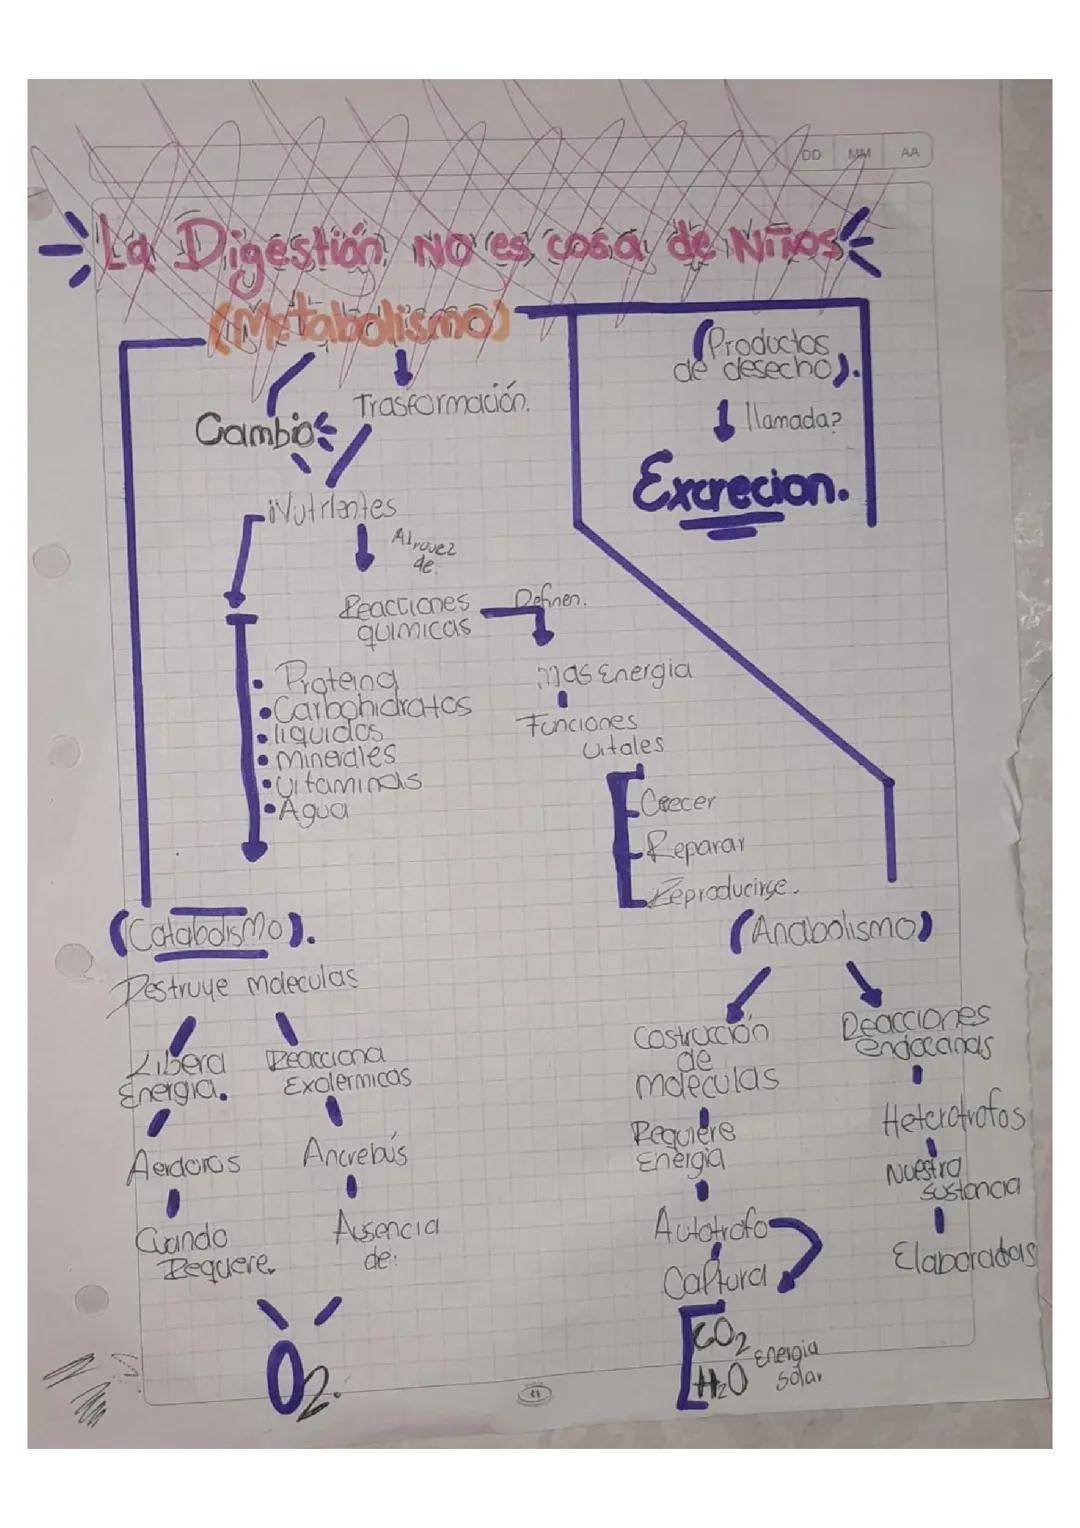 DD MM AA
La Digestión NO es cosa de Niños
(Metabolismo)
(Productos
de desecho).
llamada?
Excrecion.
Cambio
Trasformación.
Nutrientes
Atravez
de:
Reacciones
quimicas
Definen.
mas Energia
Funciones
vitales
Crecer
Reparar
Reproducirse.
• Proteina
• Carbohidratos
• liquidos
• minerales
• vitaminas
• Agua
(Catabolismo).
Destruye moleculas
Libera
Energia.
Reacciona
Exotermicas
Cuando
Requere.
Ausencia
de:
O2.
(Anabolismo)
Costrucción
de
moleculas
Requiere
Energia
Autotrofo
Captura
CO2
H2O
Energia
solar
Reacciones
Heterotrofos
Nuestra
sustancia
Elaboradas